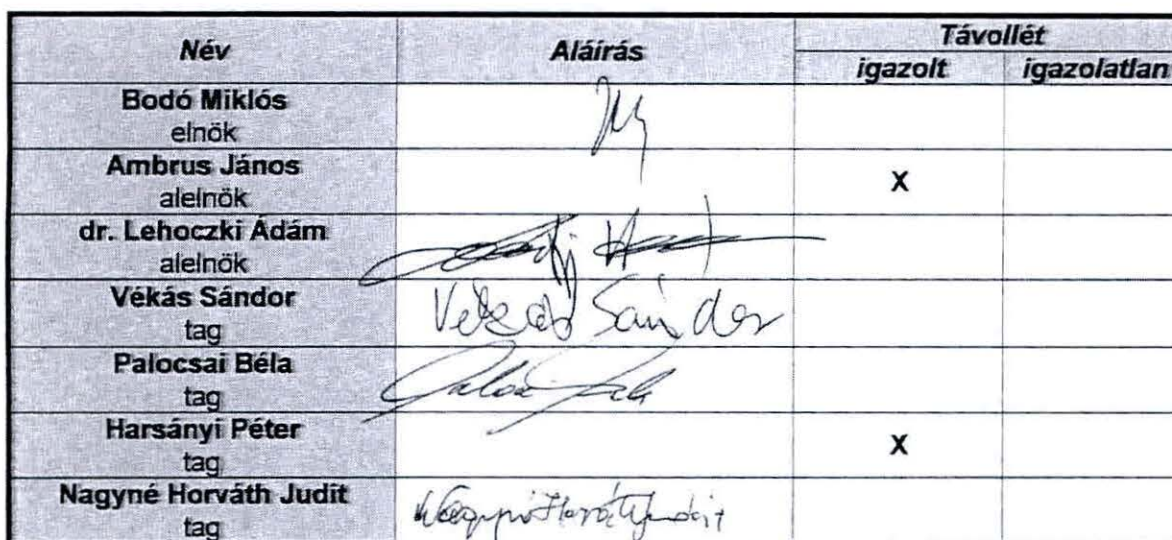 Név Aláírás Távollét
igazolt igazolatlan
Bodó Miklós
elnök
Ambrus János
alelnök
X
dr. Lehoczki Ádám
alelnök
Vékás Sándor
tag
Vékás Sándor
Palocsai Béla
tag
Harsányi Péter
tag
X
Nagyné Horváth Judit
tag
Nagyné Horváth Judit